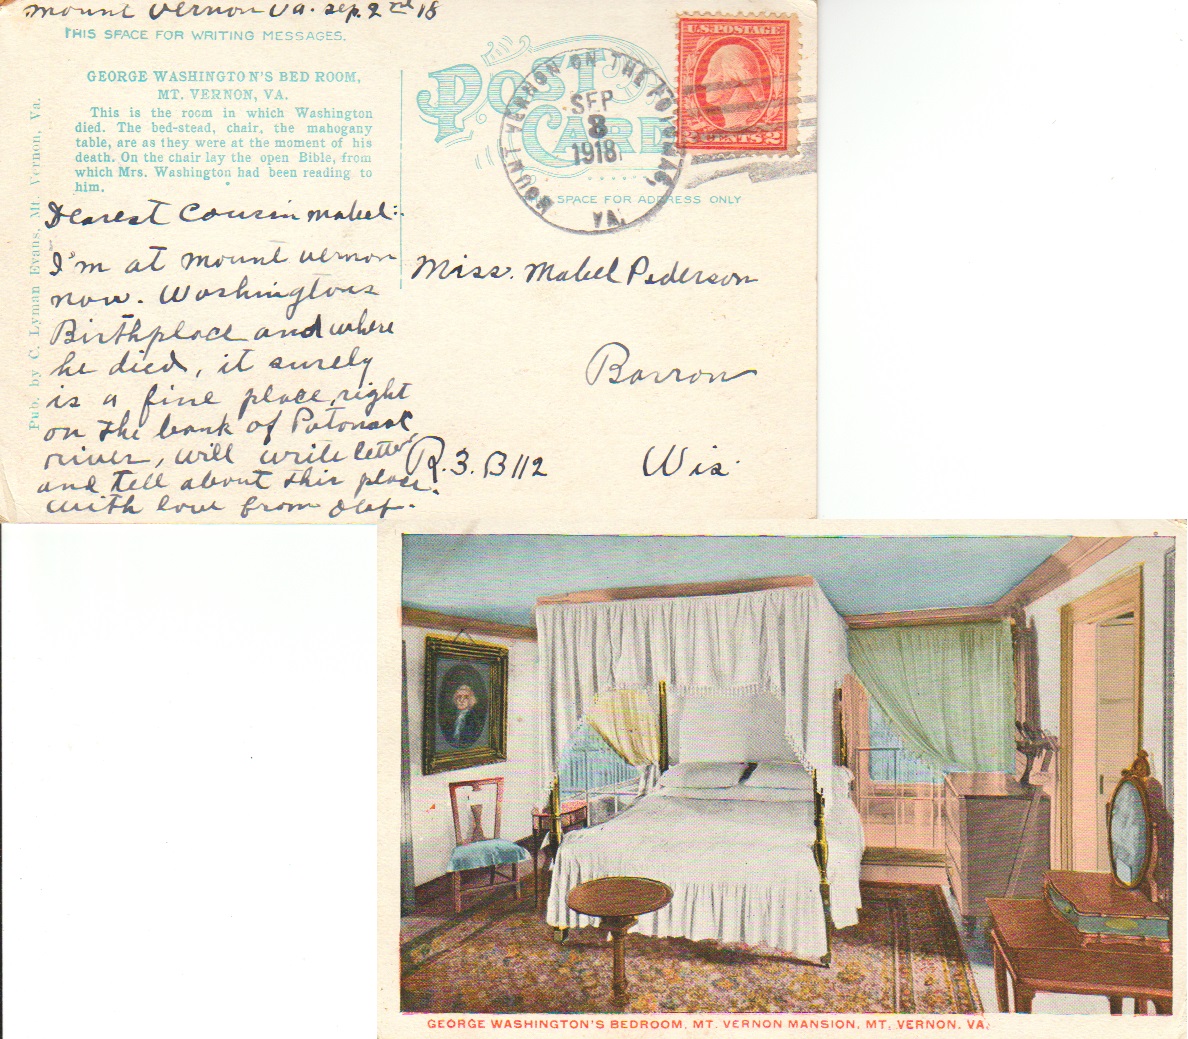 Mount Vernon Va. Sep. 2nd 18
THIS SPACE FOR WRITING MESSAGES.
GEORGE WASHINGTON'S BED ROOM,
MT. VERNON, VA.
This is the room in which Washington
died. The bed-stead, chair, the mahogany
table, are as they were at the moment of his
death. On the chair lay the open Bible, from
which Mrs. Washington had been reading to
him.
Pub. by C. Lyman Evans, Mt. Vernon, Va.
Dearest Cousin Mabel:
I'm at Mount Vernon
now. Washingtons
Birthplace and where
he died, it surely
is a fine place, right
on the bank of Potomac
river, will write letter
and tell about this place.
With love from Olaf.
POST CARD
MOUNT VERNON ON THE POTOMAC,
SEP
3
1918
VA.
U.S. POSTAGE
2 CENTS 2
SPACE FOR ADDRESS ONLY
Miss. Mabel Pederson
Barron
R.3. B112 Wis.
GEORGE WASHINGTON'S BEDROOM, MT. VERNON MANSION, MT. VERNON, VA.